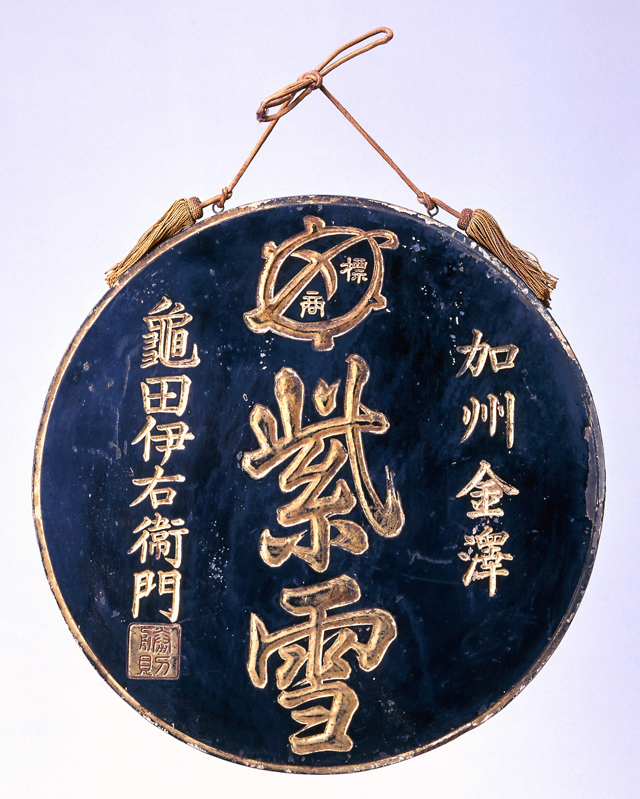 加州金澤
標
商
紫雪
龜田伊右衞門